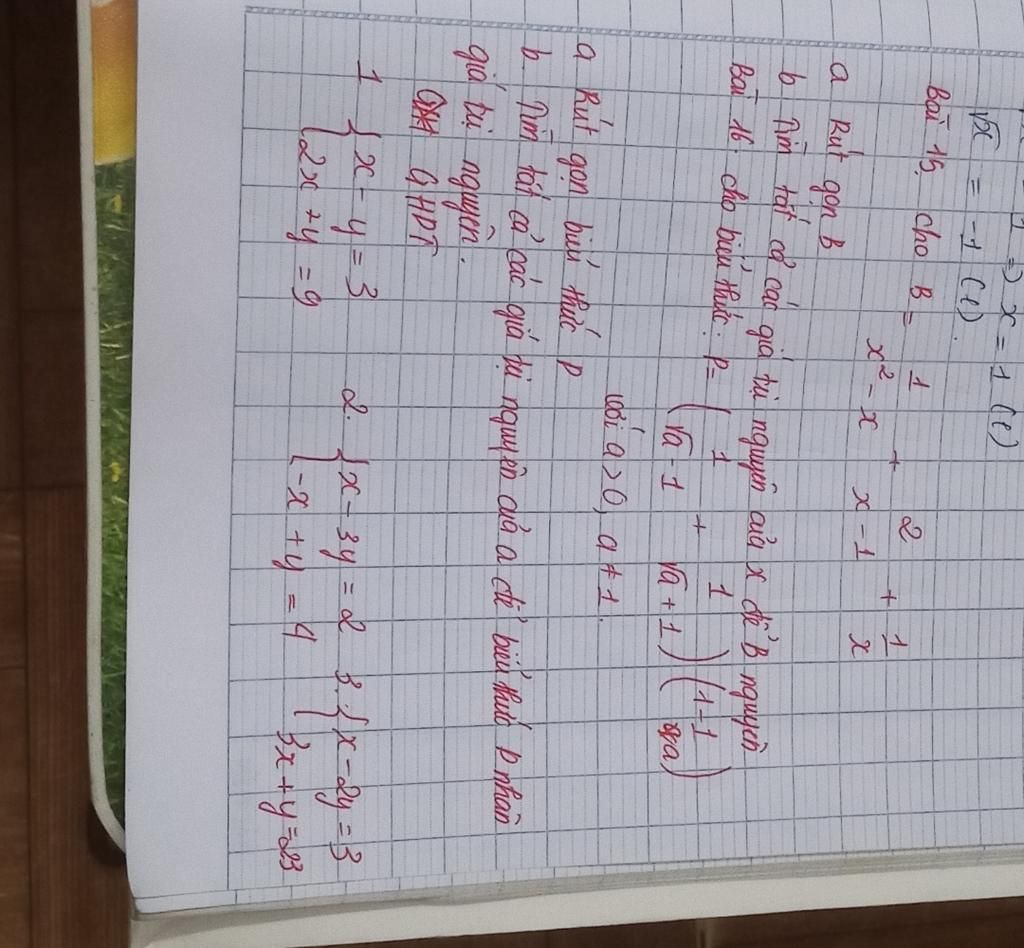 1 => x = 1 (l)
√x = -1 (l).
Bài 15, cho B = 1/(x² - x) + 2/(x - 1) + 1/x
a Rút gọn B
b Tìm tất cả các giá trị nguyên của x để B nguyên
Bài 16. cho biểu thức: P = (1/(√a - 1) + 1/(√a + 1)) (1 - 1/√a)
với a > 0, a ≠ 1.
a Rút gọn biểu thức P
b Tìm tất cả các giá trị nguyên của a để biểu thức P nhận
giá trị nguyên.
GHPT
1 { x - y = 3 2. { x - 3y = 2 3. { x - 2y = 3
{ 2x + y = 9 { -x + y = 4 { 3x + y = 23